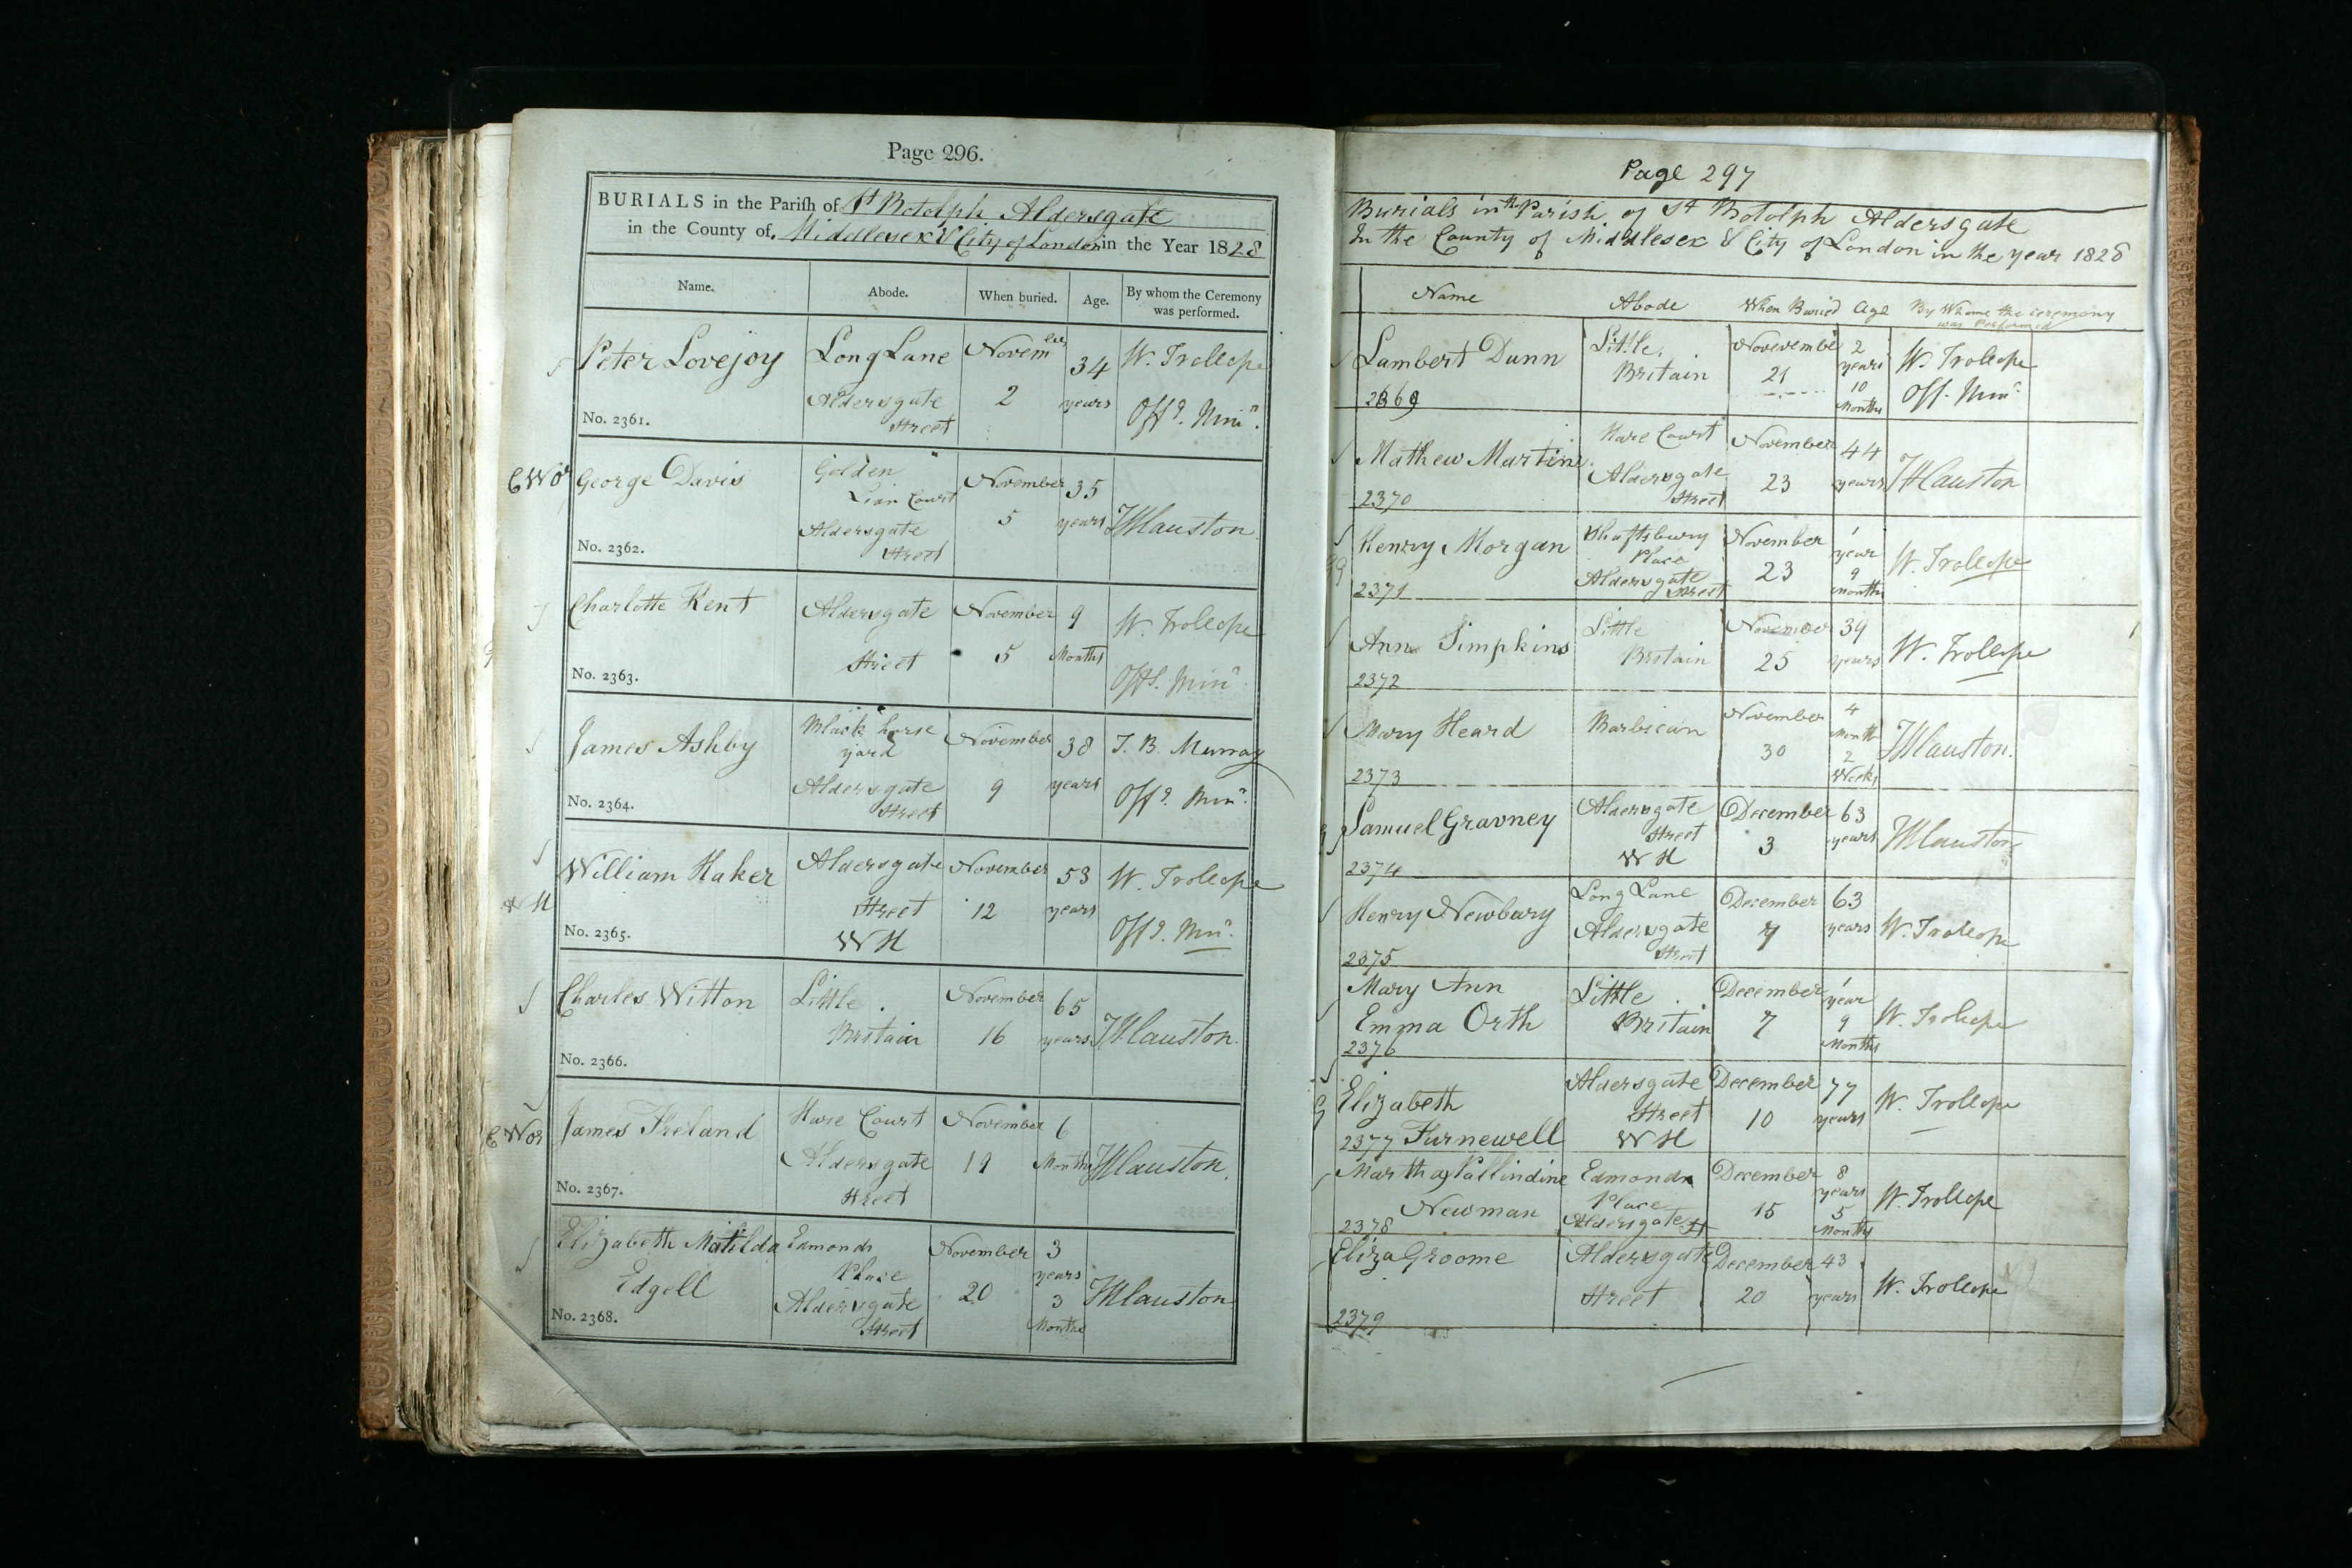 Page 296.
BURIALS in the Parish of St Botolph Aldersgate
in the County of Middlesex & City of London in the Year 1828
Name. Abode. When buried. Age. By whom the Ceremony was performed.
Peter Lovejoy
No. 2361.
Long Lane
Aldersgate
Street
Novem ber
2
34
years
W. Trollope
Offg. Minr.
George Davis
No. 2362.
Golden
Lion Court
Aldersgate
Street
November
5
35
years
Charlotte Kent
No. 2363.
Aldersgate
Street
November
5
9
Months
W. Trollope
Offg. Minr.
James Ashby
No. 2364.
Black horse
yard
Aldersgate
Street
November
9
38
years
T. B. Murray
Offg. Minr.
W H
William Haker
No. 2365.
Aldersgate
Street
W H
November
12
53
years
W. Trollope
Offg. Minr.
Charles Witton
No. 2366.
Little
Britain
November
16
65
years
James Ireland
No. 2367.
Hare Court
Aldersgate
Street
November
19
6
Months
Elizabeth Matilda
Edgell
No. 2368.
Edmonds
Place
Aldersgate
Street
November
20
3
years
3
Months
Page 297
Burials in the Parish of St Botolph Aldersgate
In the County of Middlesex & City of London in the year 1828
Name Abode When Buried Age By Whome the ceremony
was Performed
Lambert Dunn
2369
Little
Britain
21
2
years
10
Months
W. Trollope
Off. Minr.
Mathew Martin
2370
Hare Court
Aldersgate
Street
November
23
44
years
Henry Morgan
2371
Shaftsbury
Place
Aldersgate
Street
November
23
1
year
9
months
W. Trollope
Ann Simpkins
2372
Little
Britain
November
25
39
years
W. Trollope
Mary Heard
2373
Barbican
November
30
4
Month
2
Weeks
Samuel Gravney
2374
Aldersgate
Street
W H
December
3
63
years
Henry Newbury
2375
Long Lane
Aldersgate
Street
December
7
63
years
W. Trollope
Mary Ann
Emma Orth
2376
Little
Britain
December
7
1
year
9
Months
W. Trollope
Elizabeth
2377 Furnewell
Aldersgate
Street
W H
December
10
77
years
W. Trollope
Martha Pallindine
Newman
2378
Edmonds
Place
Aldersgate St
December
15
8
years
5
Months
W. Trollope
Eliza Groome
2379
Aldersgate
Street
December
20
43
years
W. Trollope